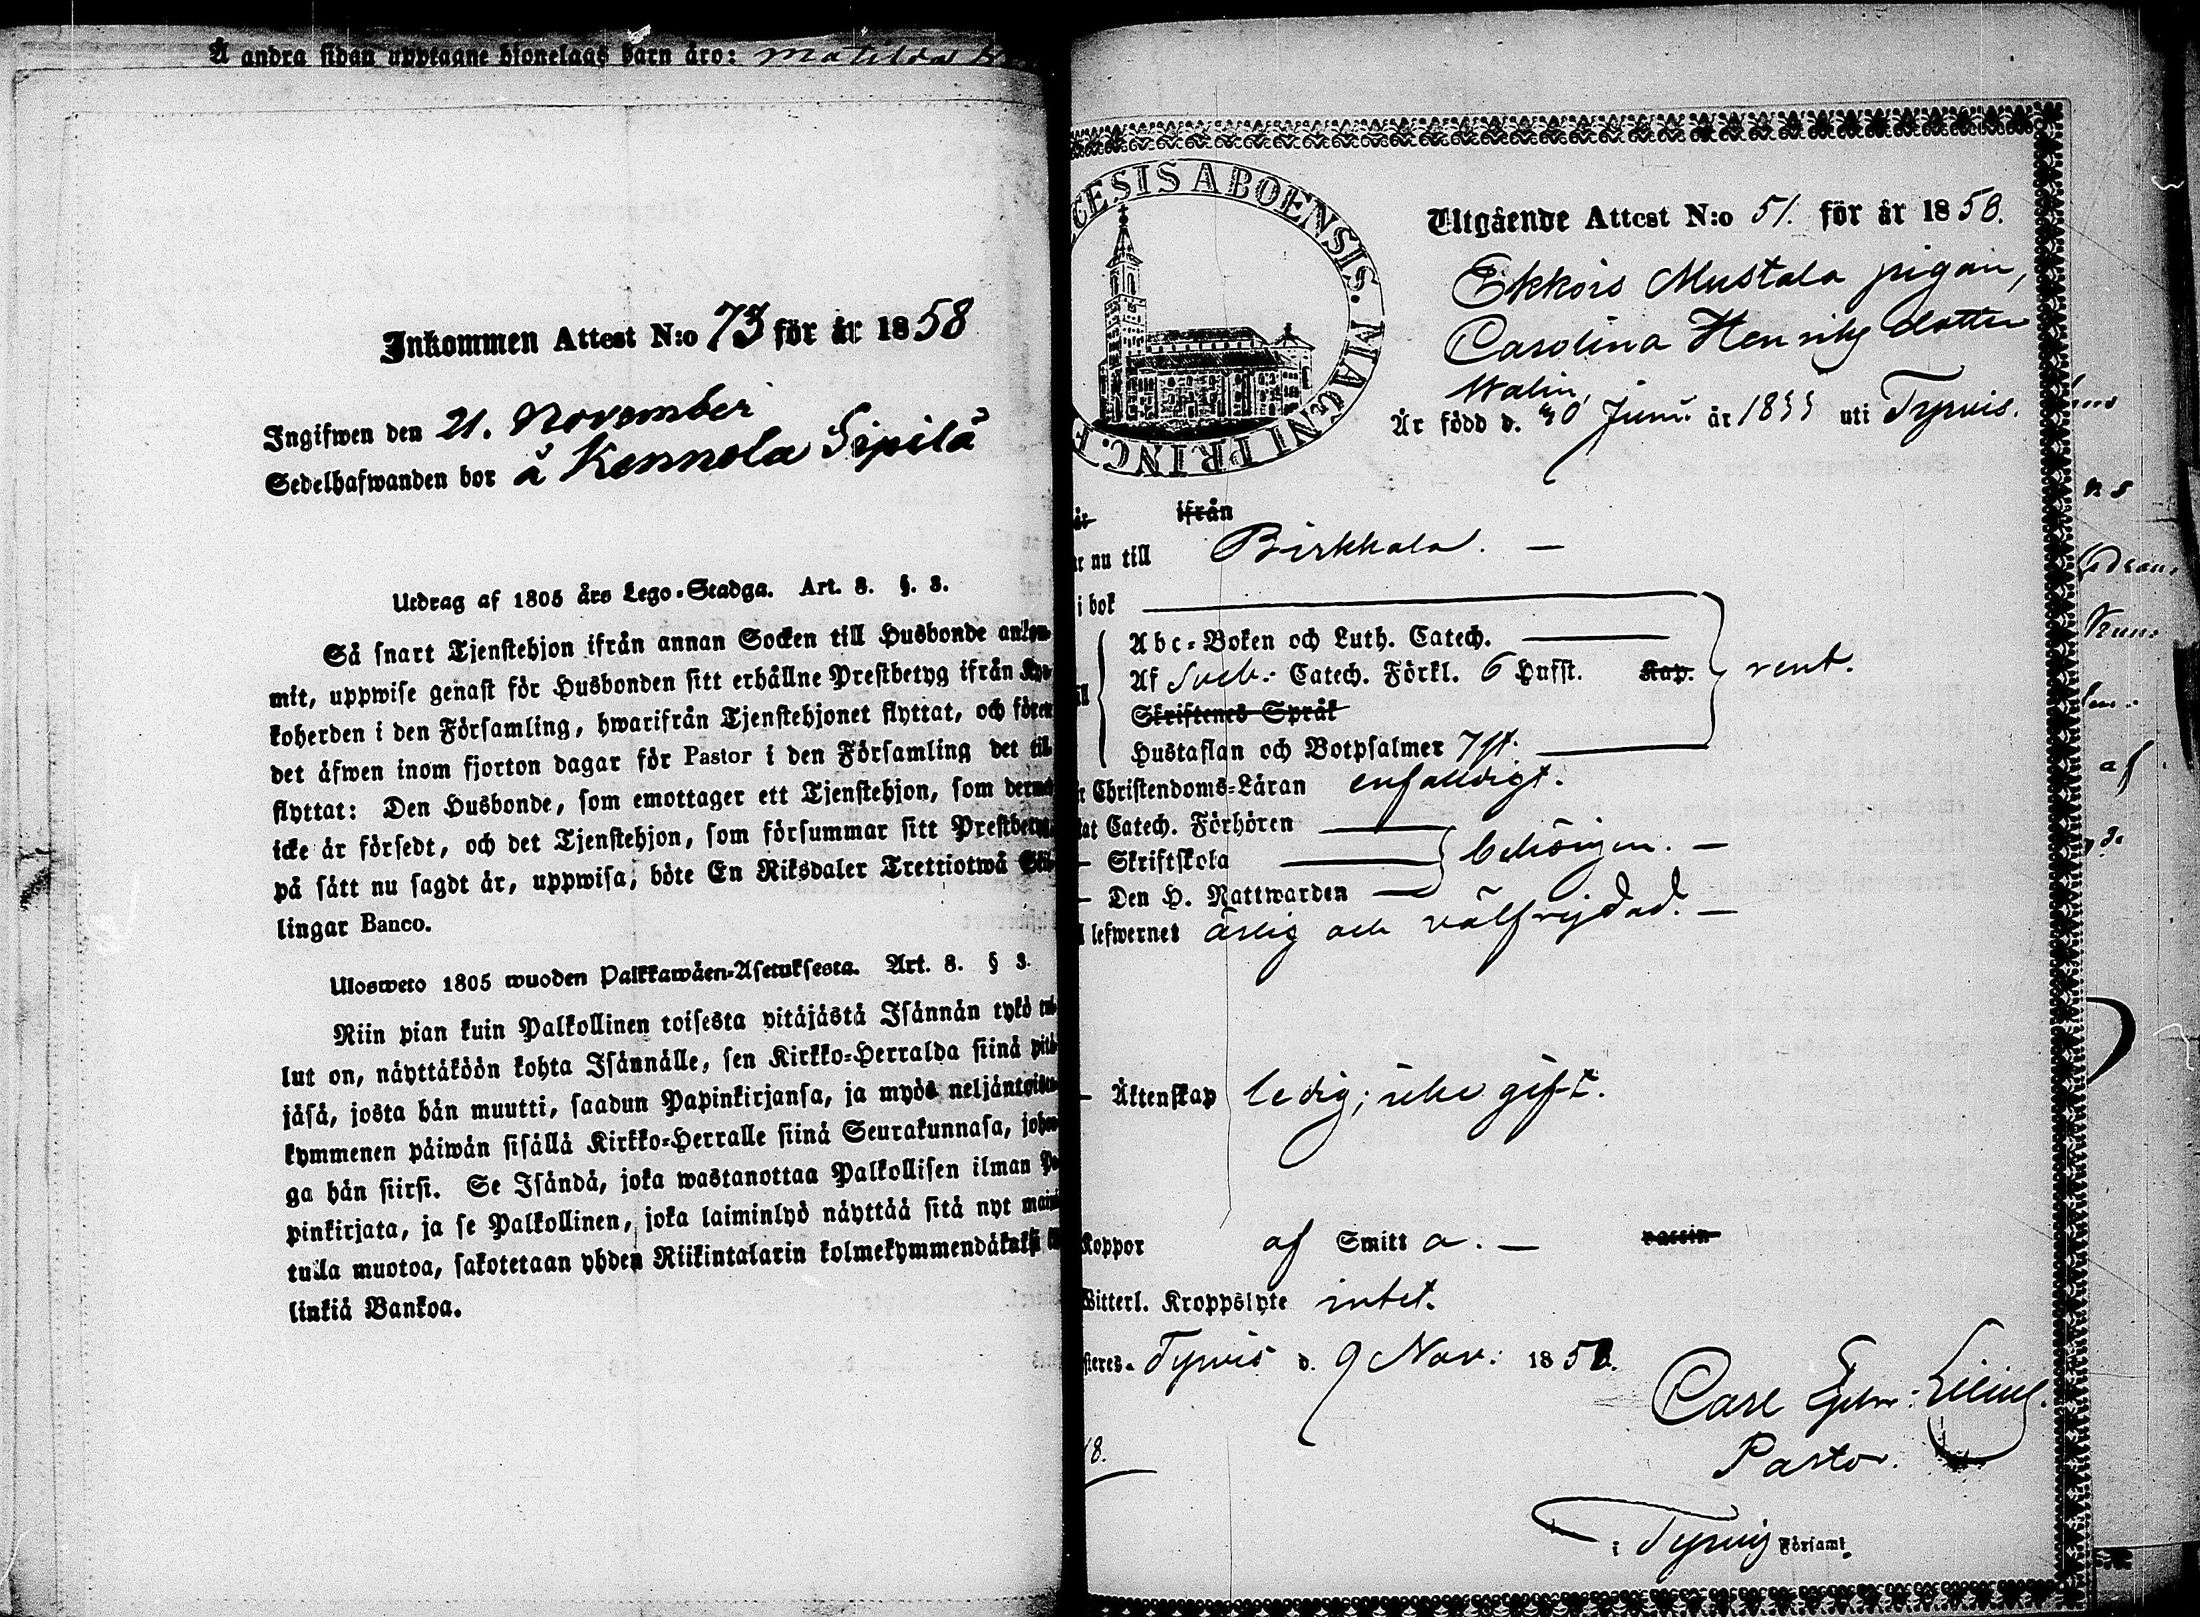 Å andra sidan upptagne hionelags barn äro: Matilda
Inkommen Attest N:o 73 för år 1858
Ingifwen den 21. November
Sedelhafwanden bor å Kennola Sipilä
Utdrag af 1805 års Lego-Stadga. Art. 8. §. 3.
Så snart Tjenstehjon ifrån annan Socken till Husbonde ankom-
mit, uppwise genast för Husbonden sitt erhållne Prestbetyg ifrån Kyr-
koherden i den Församling, hwarifrån Tjenstehjonet flyttat, och förete
det äfwen inom fjorton dagar för Pastor i den Församling det till
flyttat: Den Husbonde, som emottager ett Tjenstehjon, som dermed
icke är försedt, och det Tjenstehjon, som försummar sitt Prestbetyg,
på sätt nu sagdt är, uppwisa, böte En Riksdaler Trettiotwå Skil-
lingar Banco.
Ulosweto 1805 wuoden Palkkawäen-Asetuksesta. Art. 8. § 3.
Niin pian kuin Palkollinen toisesta pitäjästä Isännän tykö tul-
lut on, näyttäköön kohta Isännälle, sen Kirkko-Herralda siinä pitä-
jäsä, josta hän muutti, saadun Papinkirjansa, ja myös neljäntoista-
kymmenen päiwän sisällä Kirkko-Herralle siinä Seurakunnasa, johon-
ga hän siirsi. Se Isändä, joka wastanottaa Palkollisen ilman Pa-
pinkirjata, ja se Palkollinen, joka laiminlyö näyttää sitä nyt mainit-
tulla muotoa, sakotetaan yhden Riikintalarin kolmekymmendäkaksi
linkiä Bankoa.
CESIS ABOENSIS. MAGNI PRINC. F
Utgående Attest N:o 51. för år 1858.
Ekkois Mustala pigan,
Carolina Henriksdotter
Malin,
Är född d. 30 Junii år 1835 uti Tyrvis.
är ifrån
r nu till Birkkala. —
i bok
Abc-Boken och Luth. Catech.
Af Sveb. Catech. Förkl. 6 Hufst. Kap. rent.
Skriftenes Språk
Hustaflan och Botpsalmer 7 st.
Christendoms-Läran enfaldigt.
tat Catech. Förhören
— Skriftskola behörigen. —
— Den H. Nattwarden
l lefwernet ärlig och välfrejdad. —
— Äktenskap ledig; icke gift.
Koppor af Smitta. — vaccin
Witterl. Kroppslyte intet.
steres. Tyrvis d. 9 Nov. 1858.
Carl Lilius.
Pastor.
18.
i Tyrvis Församl.